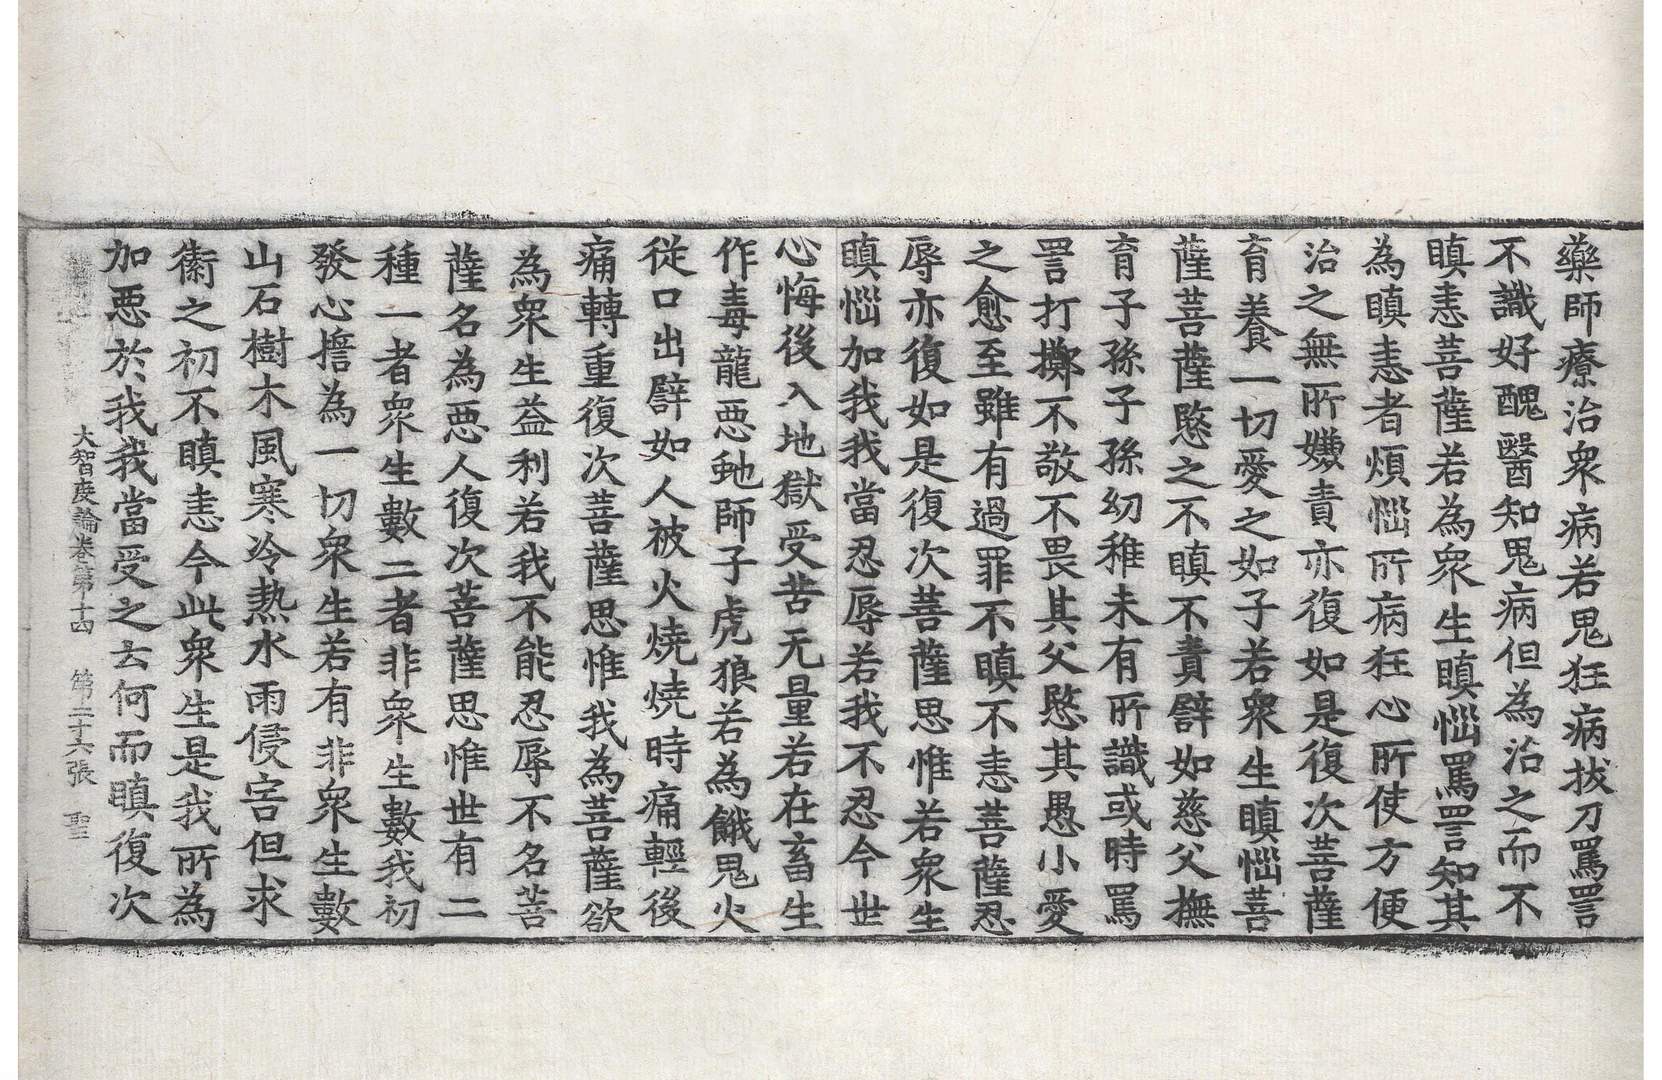 藥師療治衆病若鬼狂病拔刀罵詈
不識好醜醫知鬼病但為治之而不
瞋恚菩薩若為衆生瞋惱罵詈知其
為瞋恚者煩惱所病狂心所使方便
治之無所嫌責亦復如是復次菩薩
育養一切愛之如子若衆生瞋惱菩
薩菩薩愍之不瞋不責譬如慈父撫
育子孫子孫幼稚未有所識或時罵
詈打擲不敬不畏其父愍其愚小愛
之愈至雖有過罪不瞋不恚菩薩忍
辱亦復如是復次菩薩思惟若衆生
瞋惱加我我當忍辱若我不忍今世
心悔後入地獄受苦无量若在畜生
作毒龍惡虵師子虎狼若為餓鬼火
從口出譬如人被火燒燒時痛輕後
痛轉重復次菩薩思惟我為菩薩欲
為衆生益利若我不能忍辱不名菩
薩名為惡人復次菩薩思惟世有二
種一者衆生數二者非衆生數我初
發心擔為一切衆生若有非衆生數
山石樹木風寒冷熱水雨侵害但求
衞之初不瞋恚今此衆生是我所為
加惡於我我當受之云何而瞋復次
大智度論卷第十四 第二十六張 聖